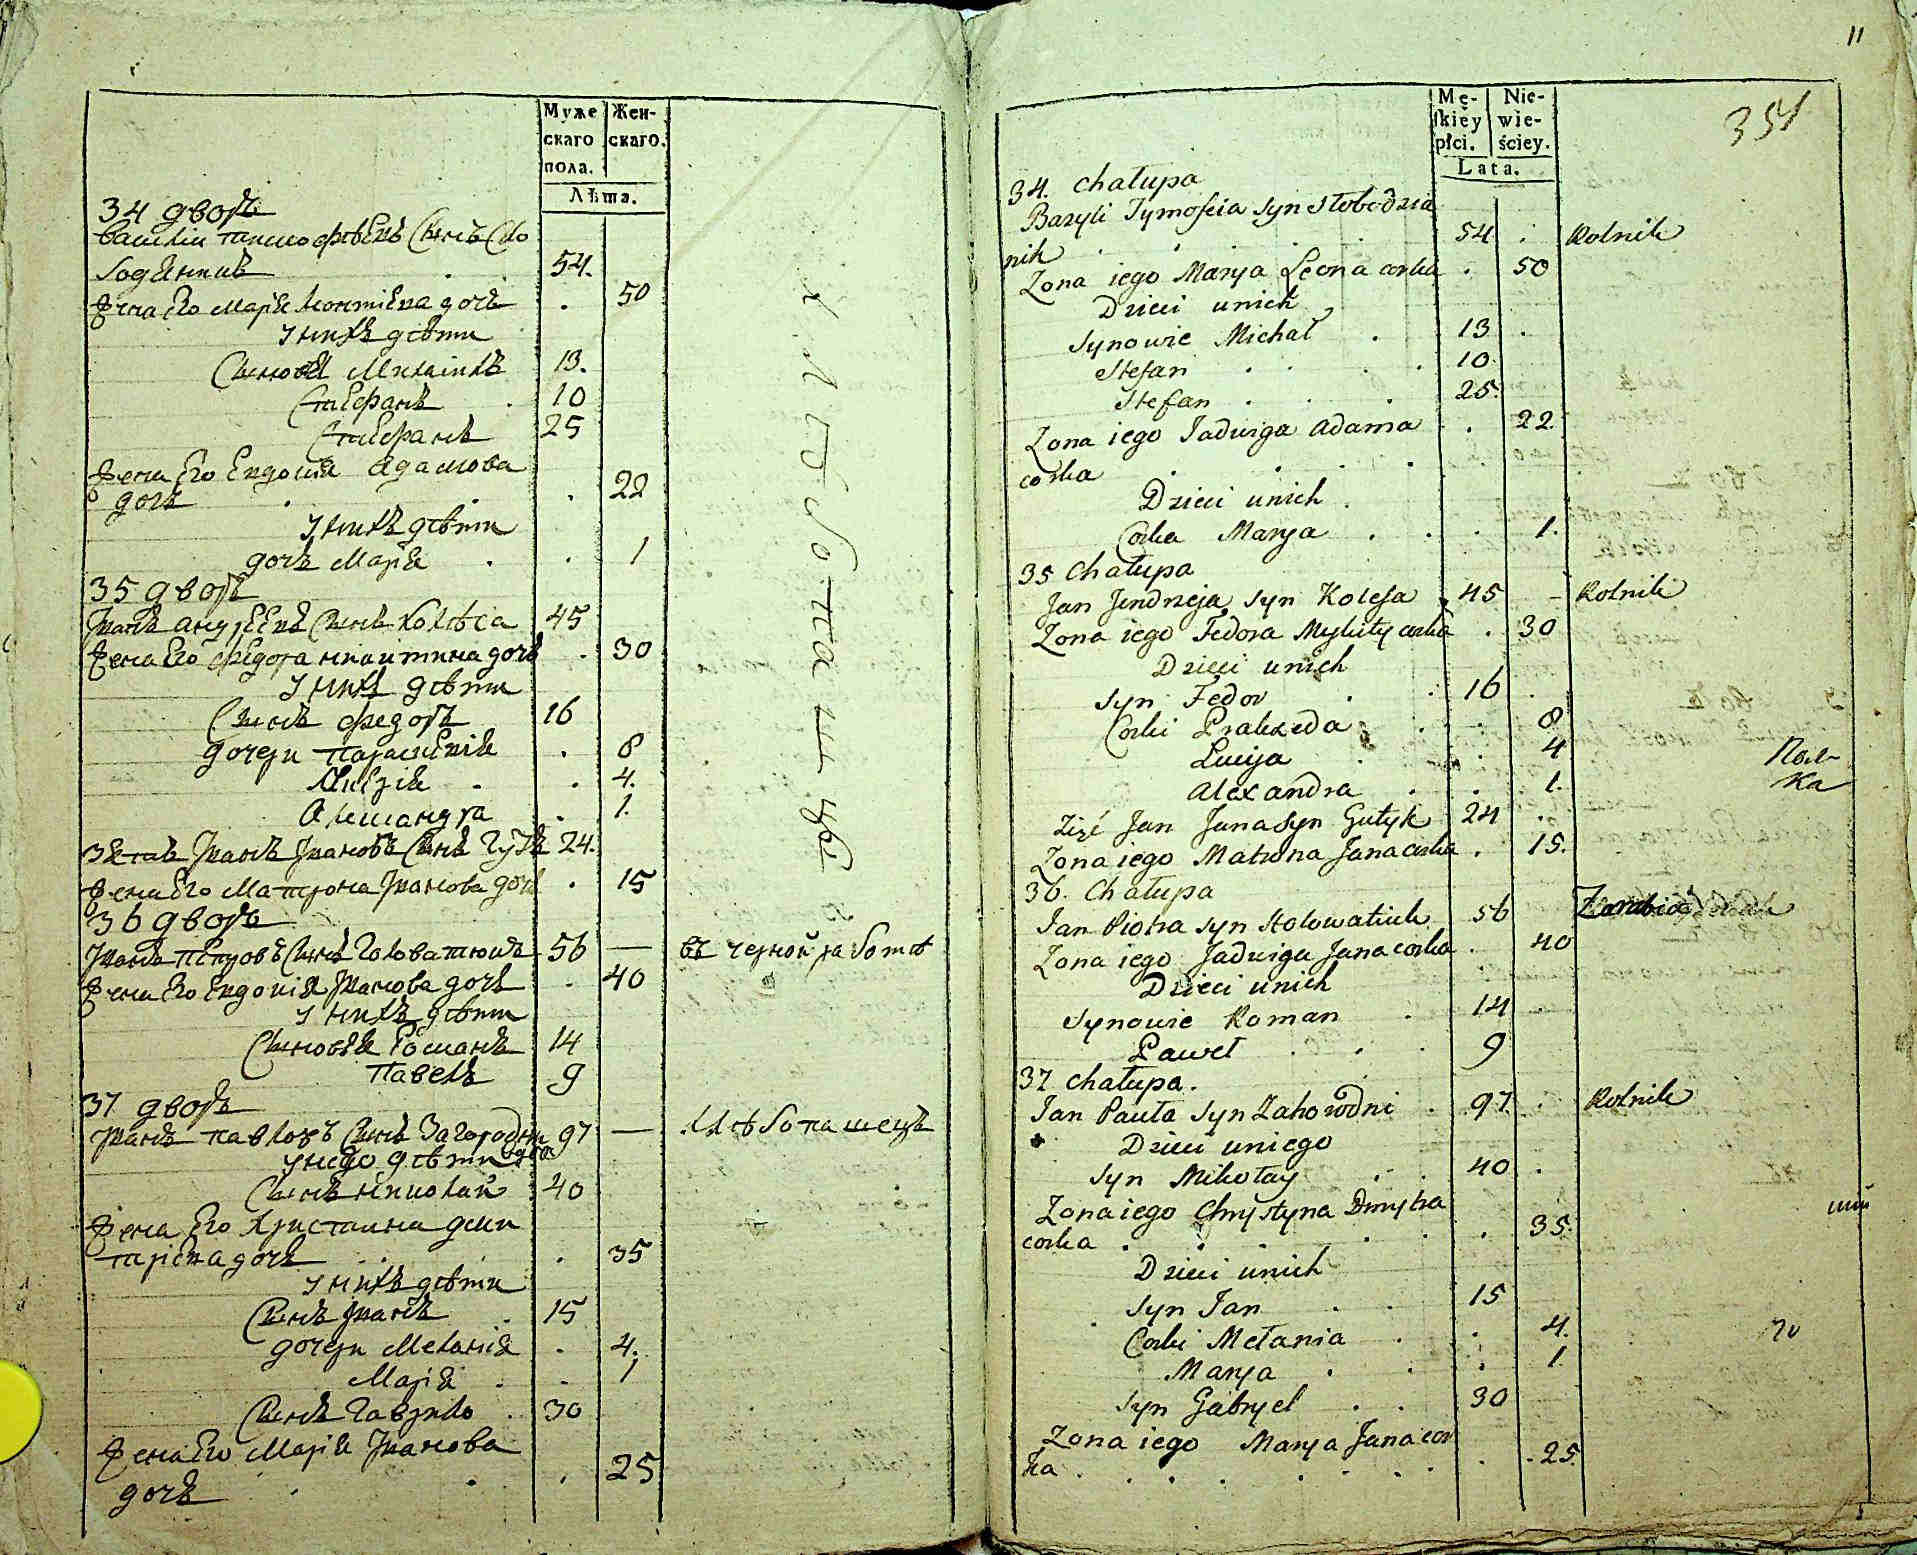 Муже
скаго
пола.
Жен-
скаго.
Лѣта.
34 дворъ
Василій тимофѣевъ Сынъ Сло
бодяникъ . . 54.
Жена Его Марія Леонтіева дочь . 50
У нихъ дѣти
Сыновья Михаилъ 13.
Стефанъ . 10
Стефанъ 25
Жена Его Евдокія Адамова
дочь . . . 22
У нихъ дѣти
дочь Марія . . 1
35 дворъ
Иванъ андреевъ Сынъ Колѣса 45
Жена Его Федора никитина дочь . 30
У нихъ дѣти
Сынъ Федоръ 16
дочери Параскевія . 8
Лукерія . . 4.
Александра . 1.
Зять Иванъ Ивановъ Сынъ 24.
Жена Его Матрона Иванова дочь . 15
36 дворъ
Иванъ Петровъ Сынъ Головатюкъ 56 — въ черной работѣ
Жена Его Евдокія Иванова дочь . 40
У нихъ дѣти
Сыновья Романъ 14
Павелъ 9
37 дворъ
Иванъ Павловъ Сынъ Загородни 97 — Хлѣбопашецъ
У него дѣти
Сынъ Николай 40
Жена Его Христина дми
тріева дочь . . . 35
У нихъ дѣти
Сынъ Иванъ . 15
дочери Меланія . 4.
Марія . . 1
Сынъ Гаврило . 30
Жена Его Марія Иванова
дочь . . . 25
Хлѣбопашцы
11
354
Mę-
skiey
płci.
Nie-
wie-
ściey.
Lata.
34. Chałupa
Bazyli Tymofieia Syn Słobodzia
nik . . 54 . Rolnik
Zona iego Marya Leona corka . 50
Dzieci unich
Synowie Michał . 13 .
Stefan . . . . 10.
Stefan . . . 25.
Zona iego Jadwiga Adama . 22
corka . . . .
Dzieci unich .
Corka Marya . . . 1.
35 Chałupa
Jan Jendrzeja Syn Kolesa . 45 - Rolnik
Zona iego Fedora Mykity corka . 30
Dzieci unich
Syn Fedor . . 16 .
Corki Praxeda . . 8
Lucija . . 4
Alexandra . . 1.
Zięć Jan Jana Syn Gutyk 24 .
Zona iego Matrona Jana corka . 15.
36. Chałupa
Jan Piotra Syn Hołowatiuk 56
Zona iego Jadwiga Jana corka . 40
Dzieci unich
Synowie Roman . 14 .
Paweł . . . 9
37 Chałupa.
Jan Pawła Syn Zahorodni . 97 . Rolnik
Dzieci uniego
Syn Mikołay . . 40 .
Zona iego Chrystyna Dmytra
corka . . . . . . 35.
Dzieci unich
Syn Jan . . 15
Corki Mełania . . 4.
Marya . . . 1
Syn Gabryel . . 30
Zona iego Marya Jana cor
ka . . . . . . . . 25.